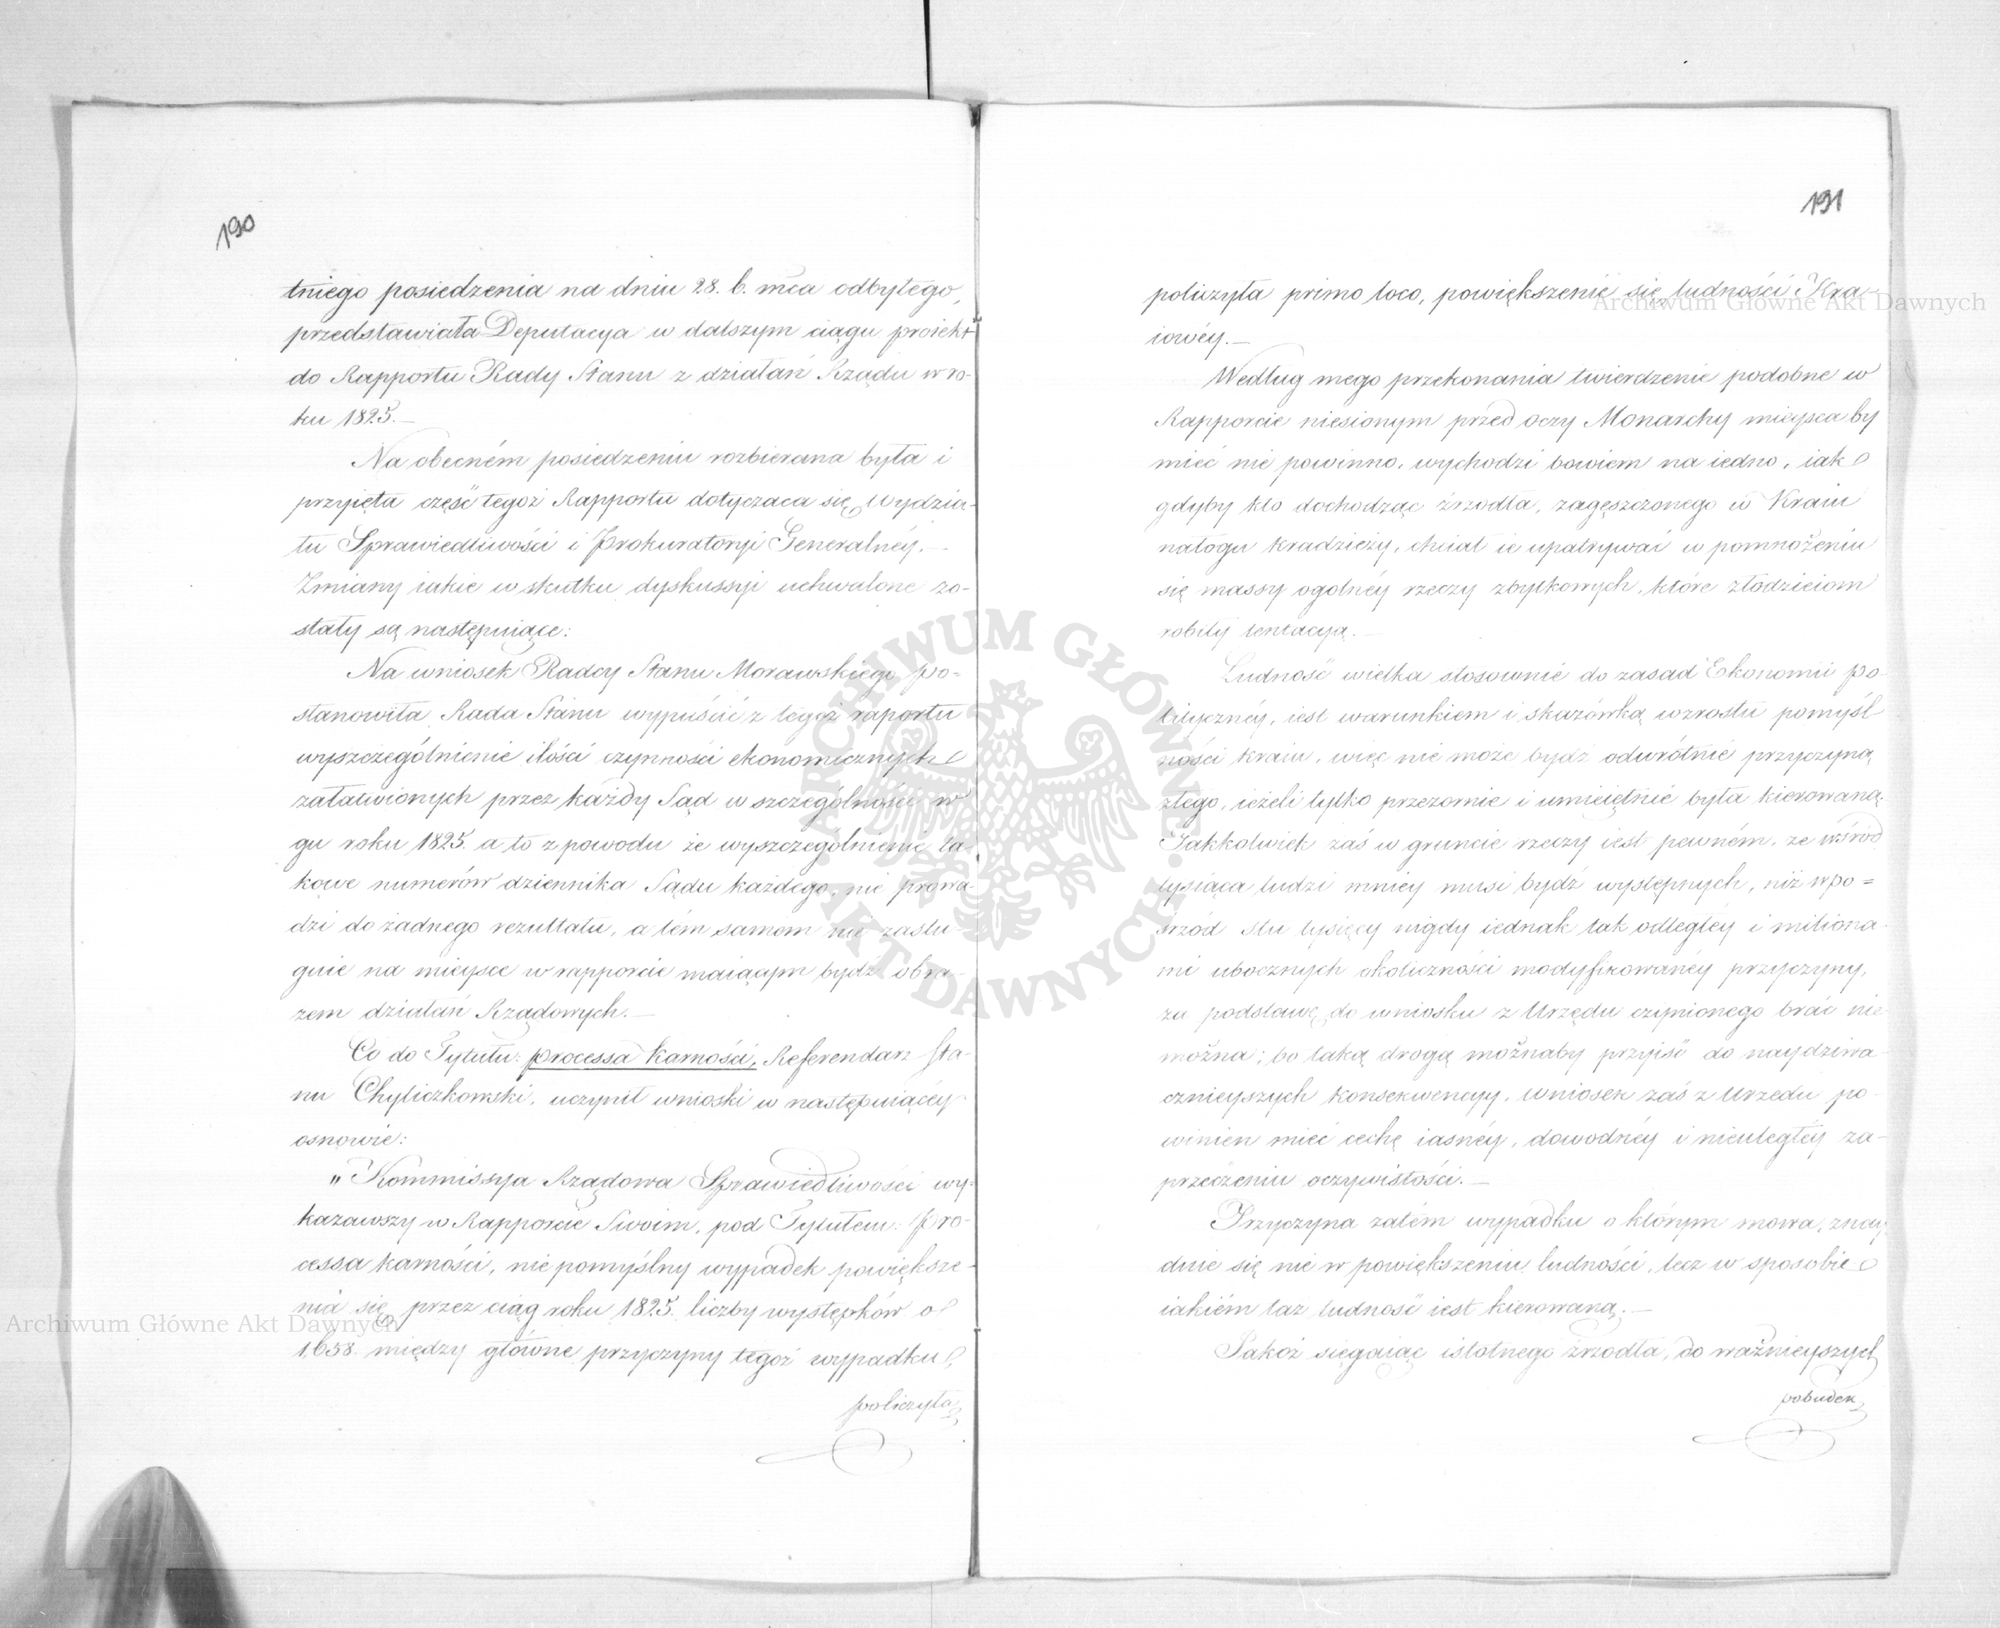 190
tniego posiedzenia na dniu 28. b. mca odbytego,
przedstawiała Deputacya w dalszym ciągu proiekt
do Rapportu Rady Stanu z działań Rządu w ro-
ku 1825.—
Na obecném posiedzeniu rozbierana była i
przyięta część tegoż Rapportu dotycząca się Wydzia-
łu Sprawiedliwości i Prokuratoryi Generalnéy.—
Zmiany iakie w skutku dyskussyi uchwalone zo-
stały są następuiące:
Na wniosek Radcy Stanu Morawskiego po-
stanowiła Rada Stanu wypuścić z tegoż raportu
wyszczególnienie ilości czynności ekonomicznych
załatwionych przez każdy Sąd w szczególności w
gu roku 1825. a to z powodu że wyszczególnienie ta-
kowe numerów dziennika Sądu każdego, nie prowa-
dzi do żadnego rezultatu, a tém samém nie zasłu-
guie na mieysce w rapporcie maiącym bydź obra-
zem działań Rządowych.—
Co do Tytułu: processa karności, Referendarz Sta-
nu Chyliczkowski, uczynił wnioski w następuiącéy
osnowie:
„Kommissya Rządowa Sprawiedliwości wy-
kazawszy w Rapporcie Swoim, pod Tytułem: Pro-
cessa karności, nie pomyślny wypadek powiększe-
nia się przez ciąg roku 1825. liczby występków o
1,658. między główne przyczyny tegoż wypadku,
policzyła
191
policzyła primo loco, powiększenie się ludności Kra-
iowéy.—
Według mego przekonania twierdzenie podobne w
Rapporcie niesionym przed oczy Monarchy mieysca by
mieć nie powinno, wychodzi bowiem na iedno, iak
gdyby kto dochodząc źrzodła, zagęszczonego w Kraiu
nałogu kradzieży, chciał ie upatrywać w pomnożeniu
się massy ogolnéy rzeczy zbytkowych, które złodzieiom
robiły tentacyą.—
Ludność wielka stosownie do zasad Ekonomii po-
litycznéy, iest warunkiem i skazówką wzrostu pomyśl
ności kraiu, więc nie może bydź odwrótnie przyczyną
złego, ieżeli tylko przezornie i umieiętnie była kierowaną.
Jakkolwiek zaś w gruncie rzeczy iest pewném, że wśród
tysiąca ludzi mniey musi bydź występnych, niż w po=
śrzód stu tysięcy nigdy iednak tak odległéy i miliona-
mi ubocznych okoliczności modyfikowanéy przyczyny,
za podstawę do wniosku z Urzędu czynionego brać nie
można; bo taką drogą możnaby przyiść do naydziwa-
cznieyszych konsekwencyy, wniosek zaś z Urzędu po-
winien mieć cechę iasnéy, dowodnéy i nieuległéy za-
przeczeniu oczywistości.—
Przyczyna zatém wypadku o którym mowa, znay-
duie się nie w powiększeniu ludności, lecz w sposobie
iakiém taż ludność iest kierowaną.—
Jakoż sięgaiąc istotnego źrzodła, do ważnieyszych
pobudek
Archiwum Główne Akt Dawnych
ARCHIWUM GŁÓWNE AKT DAWNYCH
Archiwum Główne Akt Dawnych